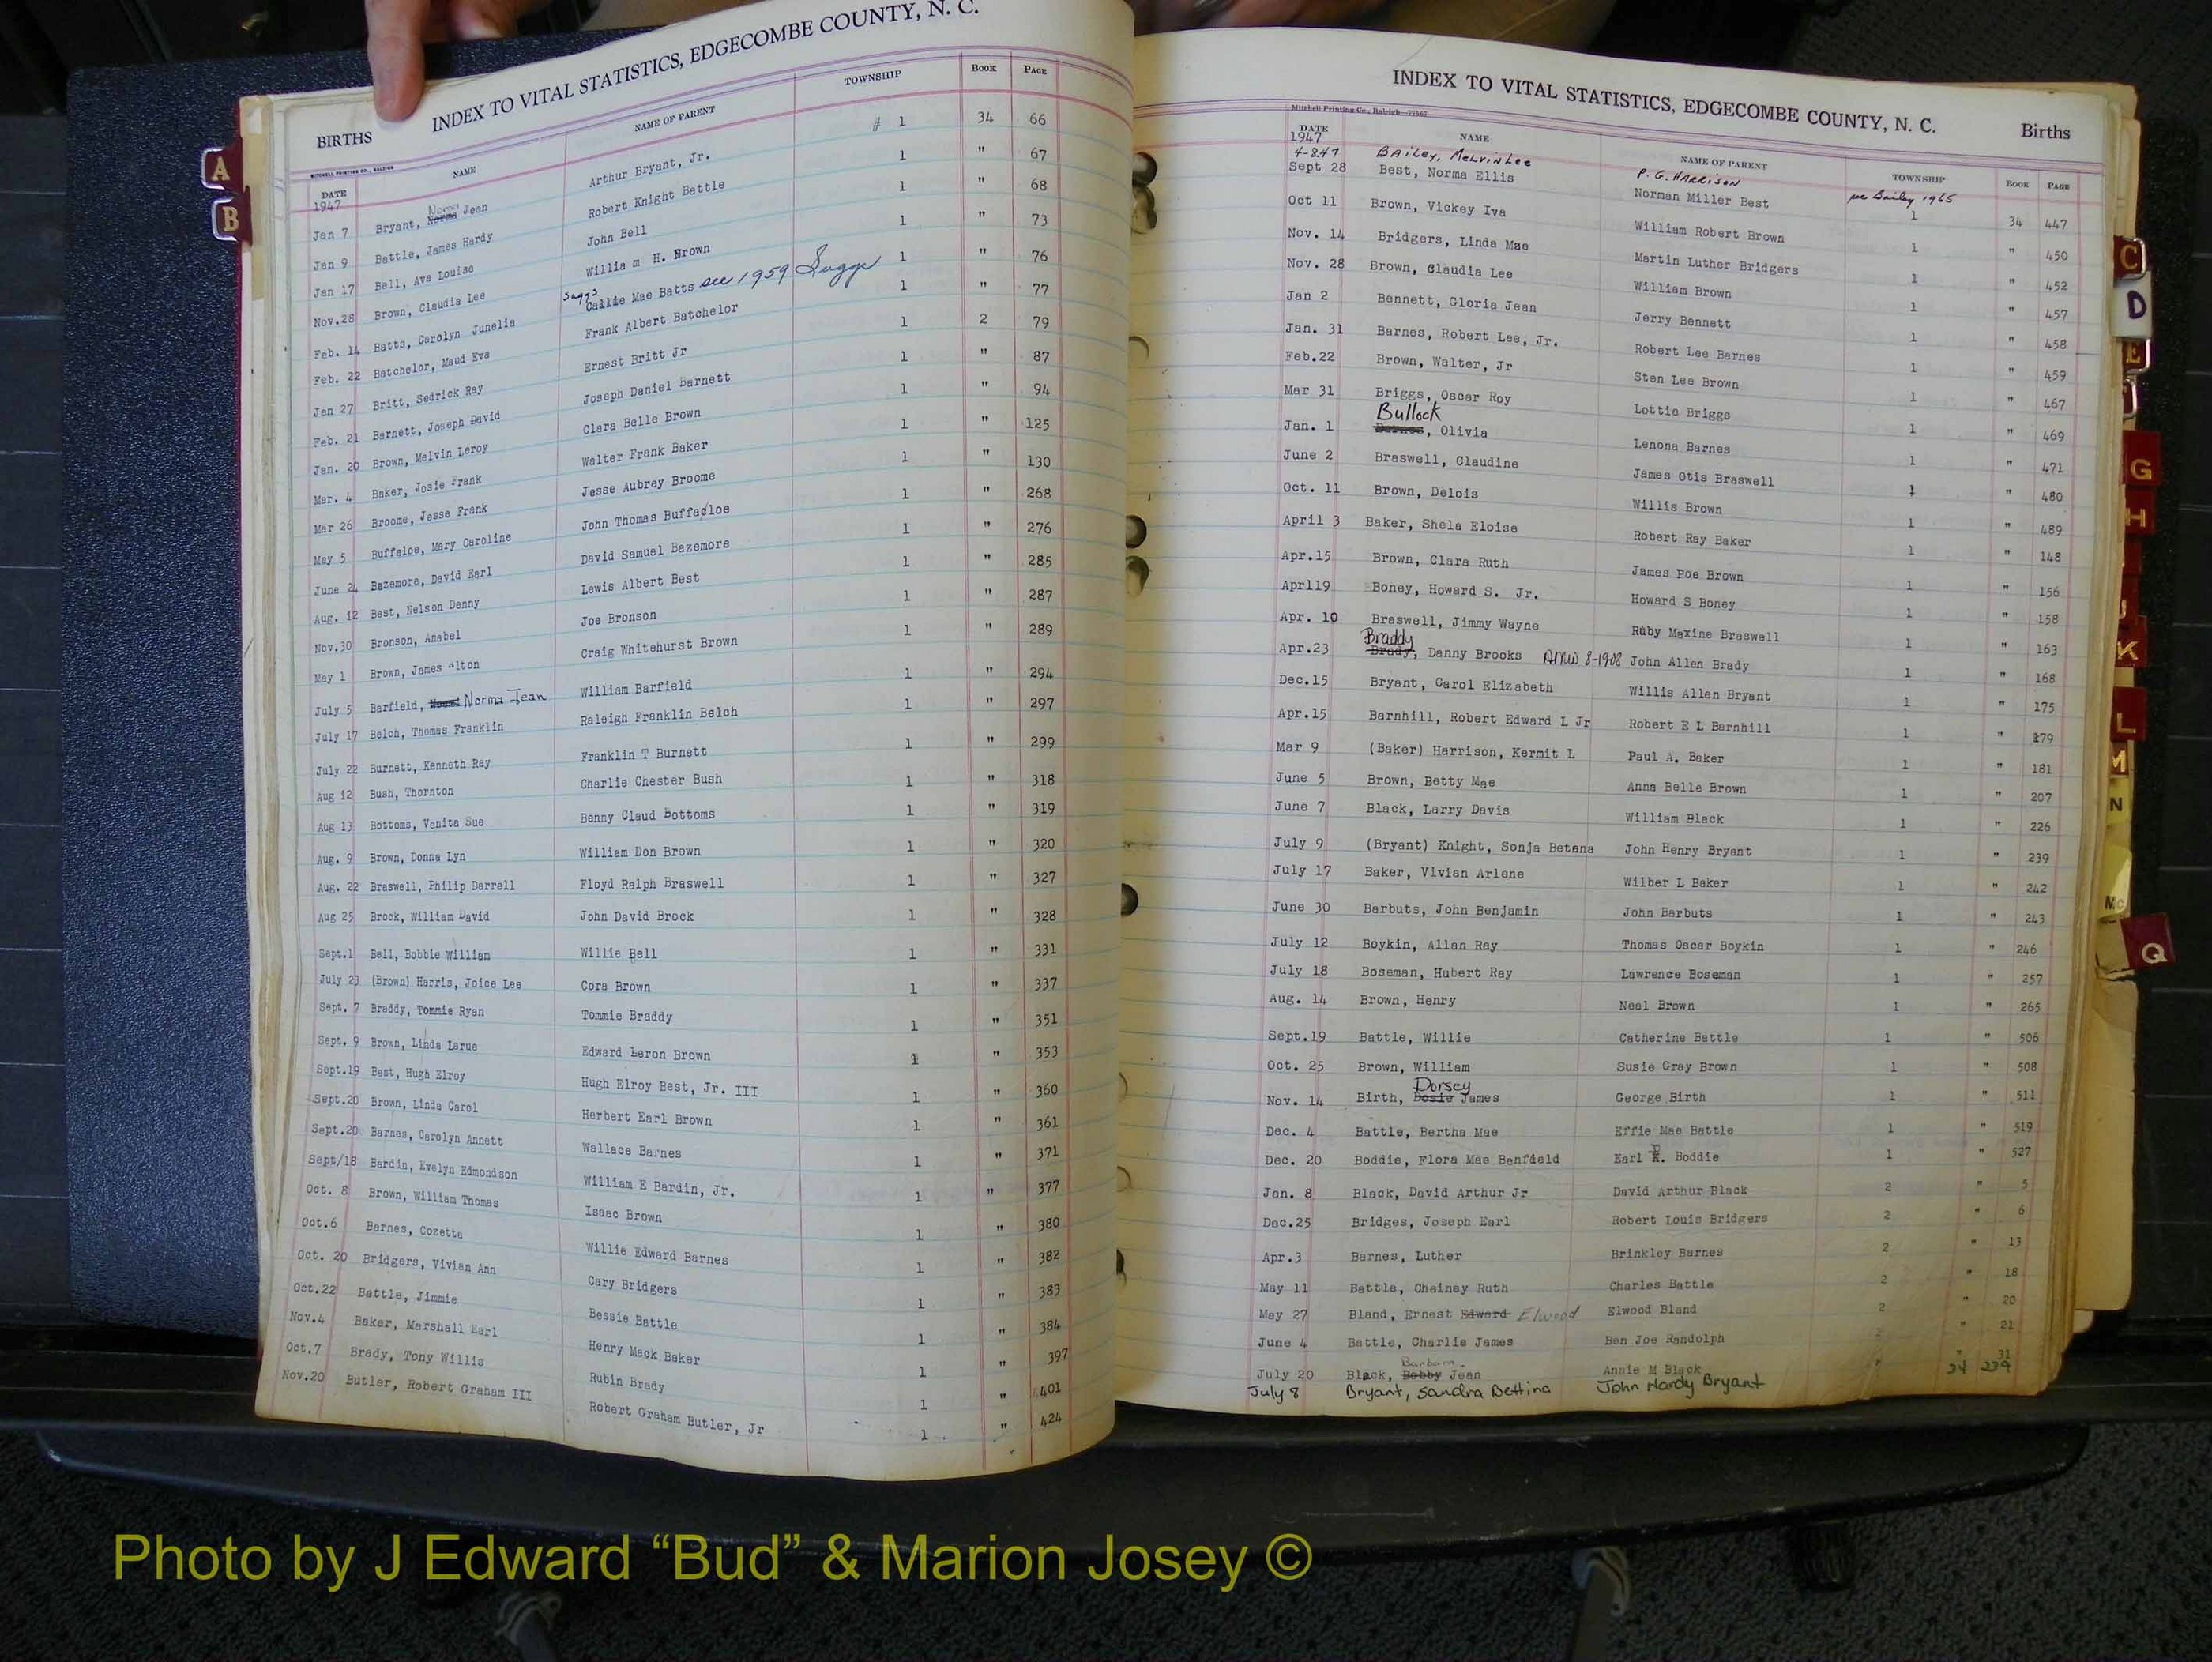 BIRTHS
INDEX TO VITAL STATISTICS, EDGECOMBE COUNTY, N. C.
MITCHELL PRINTING CO., RALEIGH
DATE NAME NAME OF PARENT TOWNSHIP BOOK PAGE
1947
Jan 7 Bryant, Norma Norma Jean Arthur Bryant, Jr. # 1 34 66
Jan 9 Battle, James Hardy Robert Knight Battle 1 " 67
Jan 17 Bell, Ava Louise John Bell 1 " 68
Nov.28 Brown, Claudia Lee William H. Brown 1 " 73
Feb. 14 Batts, Carolyn Junelia Suggs Callie Mae Batts see 1959 Suggs 1 " 76
Feb. 22 Batchelor, Maud Eva Frank Albert Batchelor 1 " 77
Jan 27 Britt, Sedrick Ray Ernest Britt Jr 1 2 79
Feb. 21 Barnett, Joseph David Joseph Daniel Barnett 1 " 87
Jan. 20 Brown, Melvin Leroy Clara Belle Brown 1 " 94
Mar. 4 Baker, Josie Frank Walter Frank Baker 1 " 125
Mar 26 Broome, Jesse Frank Jesse Aubrey Broome 1 " 130
May 5 Buffaloe, Mary Caroline John Thomas Buffaloe 1 " 268
June 24 Bazemore, David Earl David Samuel Bazemore 1 " 276
Aug. 12 Best, Nelson Denny Lewis Albert Best 1 " 285
Nov.30 Bronson, Anabel Joe Bronson 1 " 287
May 1 Brown, James Alton Craig Whitehurst Brown 1 " 289
July 5 Barfield, Norma Jean William Barfield 1 " 294
July 17 Belch, Thomas Franklin Raleigh Franklin Belch 1 " 297
July 22 Burnett, Kenneth Ray Franklin T Burnett 1 " 299
Aug 12 Bush, Thornton Charlie Chester Bush 1 " 318
Aug 13 Bottoms, Venita Sue Benny Claud Bottoms 1 " 319
Aug. 9 Brown, Donna Lyn William Don Brown 1 " 320
Aug. 22 Braswell, Philip Darrell Floyd Ralph Braswell 1 " 327
Aug 25 Brock, William David John David Brock 1 " 328
Sept.1 Bell, Bobbie William Willie Bell 1 " 331
July 23 (Brown) Harris, Joice Lee Cora Brown 1 " 337
Sept. 7 Braddy, Tommie Ryan Tommie Braddy 1 " 351
Sept. 9 Brown, Linda Larue Edward Leron Brown 1 " 353
Sept.19 Best, Hugh Elroy Hugh Elroy Best, Jr. III 1 " 360
Sept.20 Brown, Linda Carol Herbert Earl Brown 1 " 361
Sept.20 Barnes, Carolyn Annett Wallace Barnes 1 " 371
Sept/18 Bardin, Evelyn Edmondson William E Bardin, Jr. 1 " 377
Oct. 8 Brown, William Thomas Isaac Brown 1 " 380
Oct.6 Barnes, Cozetta Willie Edward Barnes 1 " 382
Oct. 20 Bridgers, Vivian Ann Cary Bridgers 1 " 383
Oct.22 Battle, Jimmie Bessie Battle 1 " 384
Nov.4 Baker, Marshall Earl Henry Mack Baker 1 " 397
Oct.7 Brady, Tony Willis Rubin Brady 1 " 401
Nov.20 Butler, Robert Graham III Robert Graham Butler, Jr 1 " 424
A
B
INDEX TO VITAL STATISTICS, EDGECOMBE COUNTY, N. C.
Births
Mitchell Printing Co., Raleigh
DATE NAME NAME OF PARENT TOWNSHIP BOOK PAGE
1947
4-8-47 BAiley, MeLvinLee P. G. HARRISON Bailey 1965
Sept 28 Best, Norma Ellis Norman Miller Best 1 34 447
Oct 11 Brown, Vickey Iva William Robert Brown 1 " 450
Nov. 14 Bridgers, Linda Mae Martin Luther Bridgers 1 " 452
Nov. 28 Brown, Claudia Lee William Brown 1 " 457
Jan 2 Bennett, Gloria Jean Jerry Bennett 1 " 458
Jan. 31 Barnes, Robert Lee, Jr. Robert Lee Barnes 1 " 459
Feb.22 Brown, Walter, Jr Sten Lee Brown 1 " 467
Mar 31 Briggs, Oscar Roy Lottie Briggs 1 " 469
Jan. 1 Bullock Barnes, Olivia Lenona Barnes 1 " 471
June 2 Braswell, Claudine James Otis Braswell 1 " 480
Oct. 11 Brown, Delois Willis Brown 1 " 489
April 3 Baker, Shela Eloise Robert Ray Baker 1 " 148
Apr.15 Brown, Clara Ruth James Poe Brown 1 " 156
April19 Boney, Howard S. Jr. Howard S Boney 1 " 158
Apr. 10 Braswell, Jimmy Wayne Ruby Maxine Braswell 1 " 163
Apr.23 Braddy Brady, Danny Brooks John Allen Brady 1 " 168
Dec.15 Bryant, Carol Elizabeth Willis Allen Bryant 1 " 175
Apr.15 Barnhill, Robert Edward L Jr Robert E L Barnhill 1 " 179
Mar 9 (Baker) Harrison, Kermit L Paul A. Baker 1 " 181
June 5 Brown, Betty Mae Anna Belle Brown 1 " 207
June 7 Black, Larry Davis William Black 1 " 226
July 9 (Bryant) Knight, Sonja Betana John Henry Bryant 1 " 239
July 17 Baker, Vivian Arlene Wilber L Baker 1 " 242
June 30 Barbuts, John Benjamin John Barbuts 1 " 243
July 12 Boykin, Allan Ray Thomas Oscar Boykin 1 " 246
July 18 Boseman, Hubert Ray Lawrence Boseman 1 " 257
Aug. 14 Brown, Henry Neal Brown 1 " 265
Sept.19 Battle, Willie Catherine Battle 1 " 506
Oct. 25 Brown, William Susie Gray Brown 1 " 508
Nov. 14 Birth, Dorsey Dosie James George Birth 1 " 511
Dec. 4 Battle, Bertha Mae Effie Mae Battle 1 " 519
Dec. 20 Boddie, Flora Mae Benfield Earl R. Boddie 1 " 527
Jan. 8 Black, David Arthur Jr David Arthur Black 2 " 5
Dec.25 Bridges, Joseph Earl Robert Louis Bridgers 2 " 6
Apr.3 Barnes, Luther Brinkley Barnes 2 " 13
May 11 Battle, Chainey Ruth Charles Battle 2 " 18
May 27 Bland, Ernest Edward Elwood Elwood Bland 2 " 20
June 4 Battle, Charlie James Ben Joe Randolph 2 " 21
July 20 Black, Barbara Bobby Jean Annie M Black " 31
July 8 Bryant, Sandra Bettina John Hardy Bryant 34 239
C
D
E
G
H
J
K
L
M
N
Mc
Q
Photo by J Edward “Bud” & Marion Josey ©